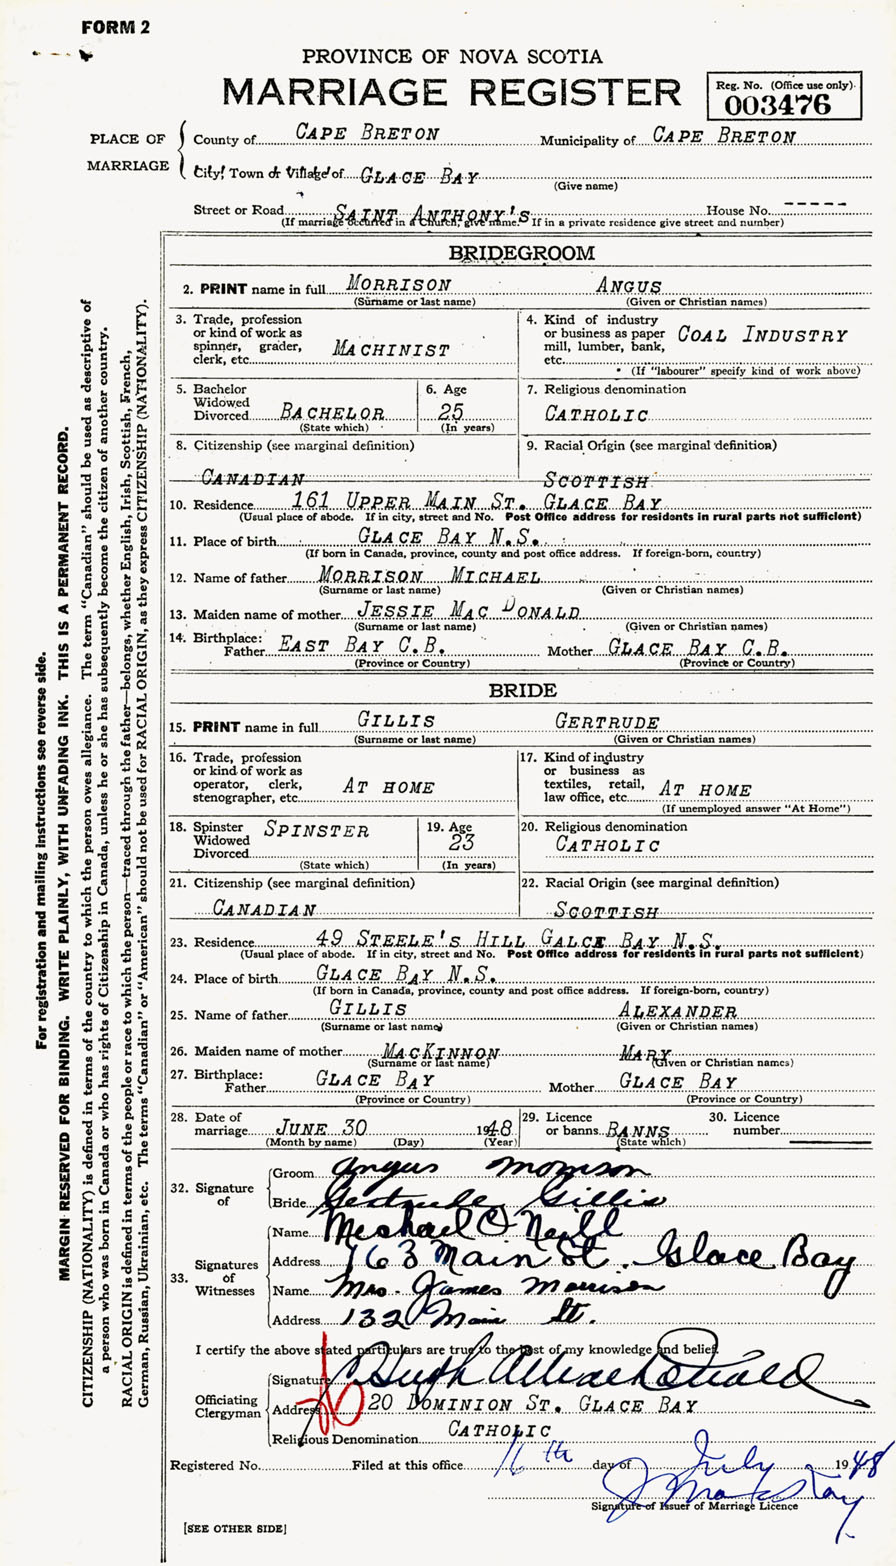 FORM 2
PROVINCE OF NOVA SCOTIA
MARRIAGE REGISTER
Reg. No. (Office use only)
003476
PLACE OF MARRIAGE
County of CAPE BRETON Municipality of CAPE BRETON
City, Town or Village of GLACE BAY
(Give name)
Street or Road SAINT ANTHONY'S House No. -----
(If marriage occurred in a Church, give name. If in a private residence give street and number)
BRIDEGROOM
2. PRINT name in full MORRISON ANGUS
(Surname or last name) (Given or Christian names)
3. Trade, profession
or kind of work as
spinner, grader,
clerk, etc. MACHINIST
4. Kind of industry
or business as paper
mill, lumber, bank,
etc. COAL INDUSTRY
(If "labourer" specify kind of work above)
5. Bachelor
Widowed
Divorced BACHELOR
(State which)
6. Age
25
(In years)
7. Religious denomination
CATHOLIC
8. Citizenship (see marginal definition)
CANADIAN
9. Racial Origin (see marginal definition)
SCOTTISH
10. Residence 161 UPPER MAIN ST. GLACE BAY
(Usual place of abode. If in city, street and No. Post Office address for residents in rural parts not sufficient)
11. Place of birth GLACE BAY N.S.
(If born in Canada, province, county and post office address. If foreign-born, country)
12. Name of father MORRISON MICHAEL
(Surname or last name) (Given or Christian names)
13. Maiden name of mother JESSIE MAC DONALD
(Surname or last name) (Given or Christian names)
14. Birthplace:
Father EAST BAY C.B. Mother GLACE BAY C.B.
(Province or Country) (Province or Country)
BRIDE
15. PRINT name in full GILLIS GERTRUDE
(Surname or last name) (Given or Christian names)
16. Trade, profession
or kind of work as
operator, clerk,
stenographer, etc. AT HOME
17. Kind of industry
or business as
textiles, retail,
law office, etc. AT HOME
(If unemployed answer "At Home")
18. Spinster SPINSTER
Widowed
Divorced
(State which)
19. Age
23
(In years)
20. Religious denomination
CATHOLIC
21. Citizenship (see marginal definition)
CANADIAN
22. Racial Origin (see marginal definition)
SCOTTISH
23. Residence 49 STEELE'S HILL GALCE BAY N.S.
(Usual place of abode. If in city, street and No. Post Office address for residents in rural parts not sufficient)
24. Place of birth GLACE BAY N.S.
(If born in Canada, province, county and post office address. If foreign-born, country)
25. Name of father GILLIS ALEXANDER
(Surname or last name) (Given or Christian names)
26. Maiden name of mother MACKINNON MARY
(Surname or last name) (Given or Christian names)
27. Birthplace:
Father GLACE BAY Mother GLACE BAY
(Province or Country) (Province or Country)
28. Date of
marriage JUNE 30 1948
(Month by name) (Day) (Year)
29. Licence
or banns BANNS
(State which)
30. Licence
number
32. Signature of
Groom Angus Morrison
Bride Gertrude Gillis
33. Signatures of Witnesses
Name Michael O'Neill
Address 163 Main St. Glace Bay
Name Mrs. James Morrison
Address 132 Main St.
I certify the above stated particulars are true to the best of my knowledge and belief.
Officiating Clergyman
Signature Hugh A MacDonald
Address 20 DOMINION ST. GLACE BAY
Religious Denomination CATHOLIC
Registered No. Filed at this office 16th day of July 1948
Signature of Issuer of Marriage Licence
[SEE OTHER SIDE]
For registration and mailing instructions see reverse side.
MARGIN RESERVED FOR BINDING. WRITE PLAINLY, WITH UNFADING INK. THIS IS A PERMANENT RECORD.
CITIZENSHIP (NATIONALITY) is defined in terms of the country to which the person owes allegiance. The term "Canadian" should be used as descriptive of
a person who was born in Canada or who has rights of Citizenship in Canada, unless he or she has subsequently become the citizen of another country.
RACIAL ORIGIN is defined in terms of the people or race to which the person—traced through the father—belongs, whether English, Irish, Scottish, French,
German, Russian, Ukrainian, etc. The terms "Canadian" or "American" should not be used for RACIAL ORIGIN, as they express CITIZENSHIP (NATIONALITY).